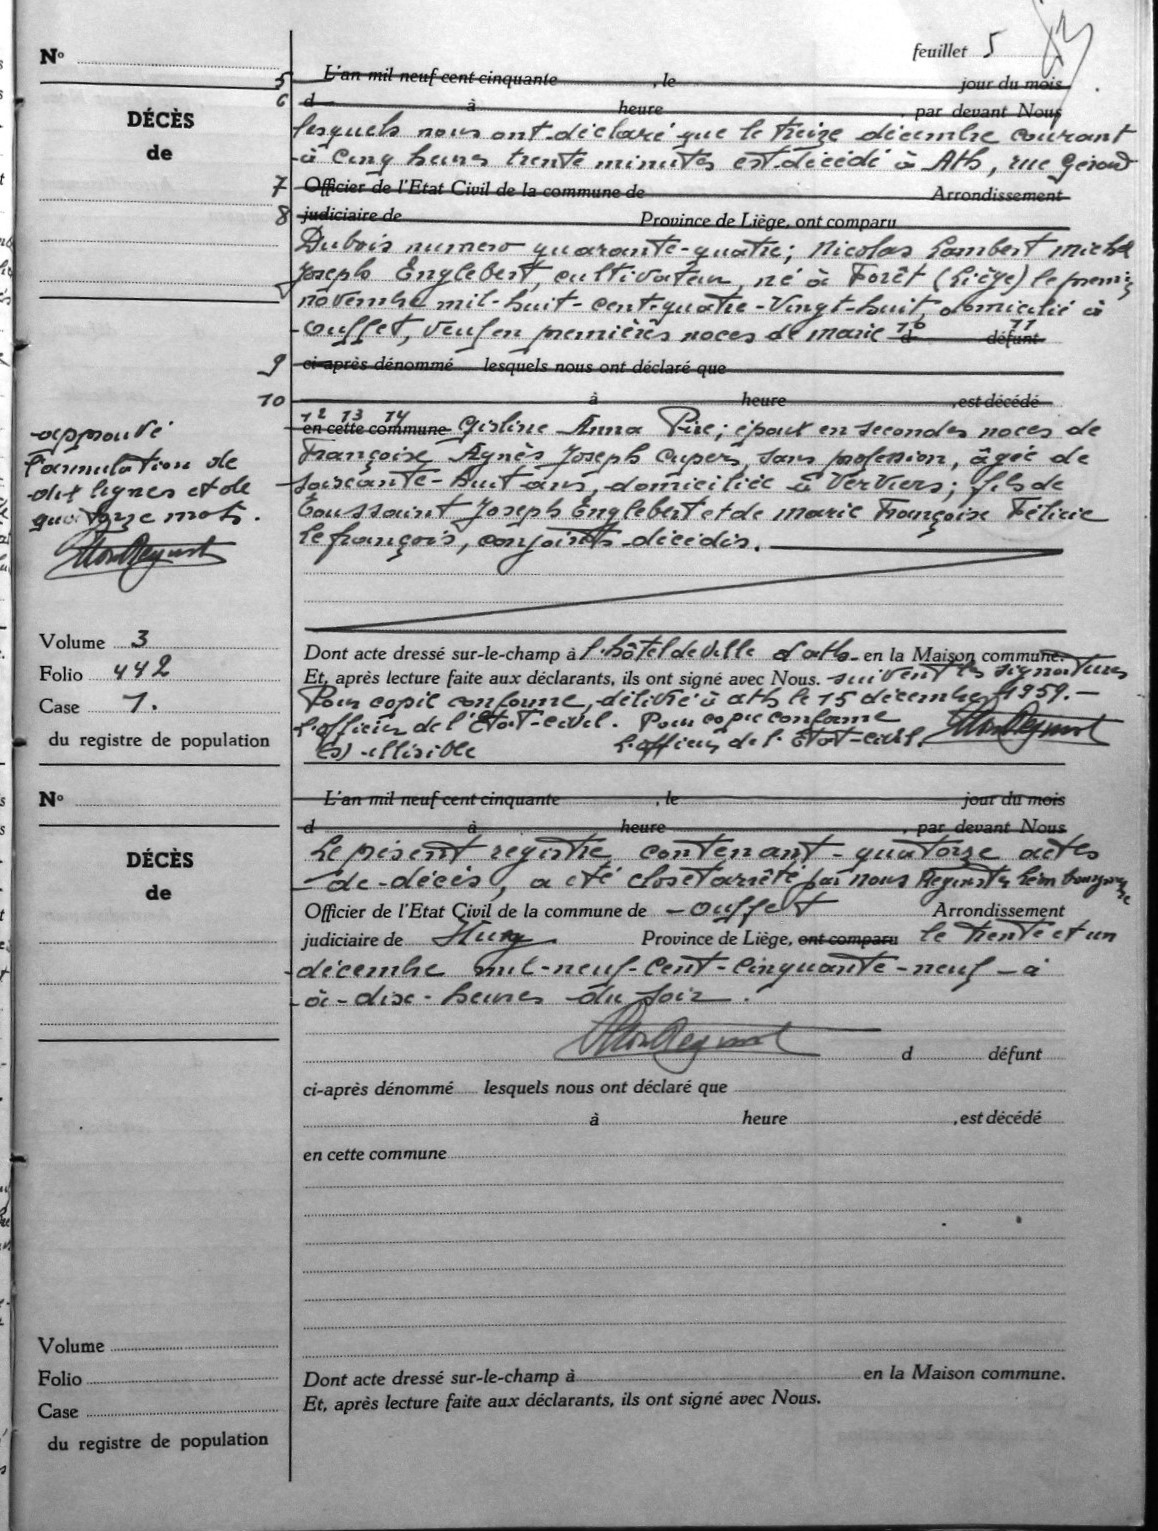 feuillet 5
Nº
5 L'an mil neuf cent cinquante , le jour du mois
6 d à heure , par devant Nous
DÉCÈS
de
lesquels nous ont déclaré que le treize décembre courant
à cinq heures trente minutes est décédé à Ath, rue Gérard
7 Officier de l'Etat Civil de la commune de Arrondissement
8 judiciaire de Province de Liège, ont comparu
Dubois numero quarante-quatre; Nicolas Lambert Michel
Joseph Englebert, cultivateur, né à Forêt (Liège) le premier
novembre mil-huit-cent-quatre-vingt-huit, domicilié à
Ouffet, veuf en premières noces de Marie 10 d 11 défunt
9 ci-après dénommé lesquels nous ont déclaré que
10 à heure , est décédé
12 13 14
en cette commune Gisline Anna Pire; époux en secondes noces de
Françoise Agnès Joseph Cupers, sans profession, âgée de
soixante-huit ans, domiciliée à Verviers; fils de
Toussaint Joseph Englebert et de Marie Françoise Félicie
Lefrançois, conjoints décédés.
approuvé
l'annulation de
dix lignes et de
quatorze mots.
Volume 3
Folio 442
Case 1.
du registre de population
Dont acte dressé sur-le-champ à l'hôtel de ville d'Ath en la Maison commune.
Et, après lecture faite aux déclarants, ils ont signé avec Nous. suivent les signatures
Pour copie conforme, délivré à Ath le 15 décembre 1959.
L'officier de l'Etat-civil. Pour copie conforme
(s) illisible L'officier de l'Etat-civil.
Nº
L'an mil neuf cent cinquante , le jour du mois
d à heure , par devant Nous
DÉCÈS
de
Le présent registre, contenant quatorze actes
de décès, a été clos et arrêté par nous
Officier de l'Etat Civil de la commune de Ouffet Arrondissement
judiciaire de Huy Province de Liège, ont comparu le trente et un
décembre mil-neuf-cent-cinquante-neuf - à
à - dix - heures du soir.
d défunt
ci-après dénommé lesquels nous ont déclaré que
à heure , est décédé
en cette commune
Volume
Folio
Case
du registre de population
Dont acte dressé sur-le-champ à en la Maison commune.
Et, après lecture faite aux déclarants, ils ont signé avec Nous.